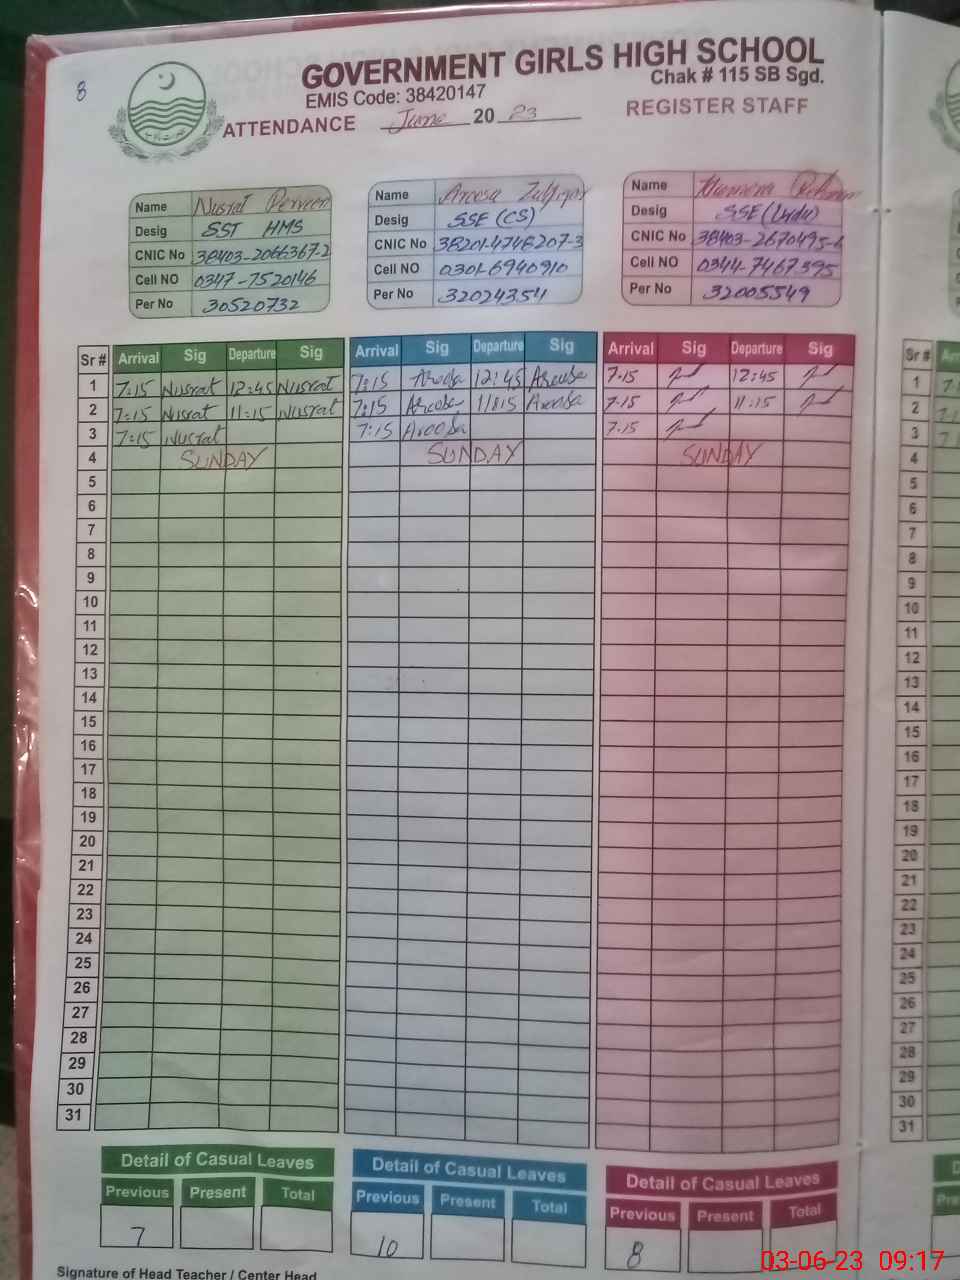 8
GOVERNMENT GIRLS HIGH SCHOOL
Chak # 115 SB Sgd.
EMIS Code: 38420147
ATTENDANCE June 20 23 REGISTER STAFF
Name Nusrat Perveen
Desig SST HMS
CNIC No 38403-2066367-2
Cell NO 0347-7520146
Per No 30520732
Name Aroosa Zulfiqar
Desig SSE (CS)
CNIC No 38201-4746207-3
Cell NO 0301-6940910
Per No 32024354
Name Rehman
Desig SSE (Urdu)
CNIC No 38403-2670495-6
Cell NO 0344-7467395
Per No 32005549
Sr # Arrival Sig Departure Sig Arrival Sig Departure Sig Arrival Sig Departure Sig
1 7:15 Nusrat 12:45 Nusrat 7:15 Aroosa 12:45 Aroosa 7:15 12:45
2 7:15 Nusrat 11:15 Nusrat 7:15 Aroosa 11:15 Aroosa 7:15 11:15
3 7:15 Nusrat 7:15 Aroosa 7:15
4 SUNDAY SUNDAY SUNDAY
5
6
7
8
9
10
11
12
13
14
15
16
17
18
19
20
21
22
23
24
25
26
27
28
29
30
31
Detail of Casual Leaves
Previous Present Total
7
Detail of Casual Leaves
Previous Present Total
10
Detail of Casual Leaves
Previous Present Total
8
Signature of Head Teacher / Center Head
Sr #
1
2
3
4
5
6
7
8
9
10
11
12
13
14
15
16
17
18
19
20
21
22
23
24
25
26
27
28
29
30
31
03-06-23 09:17